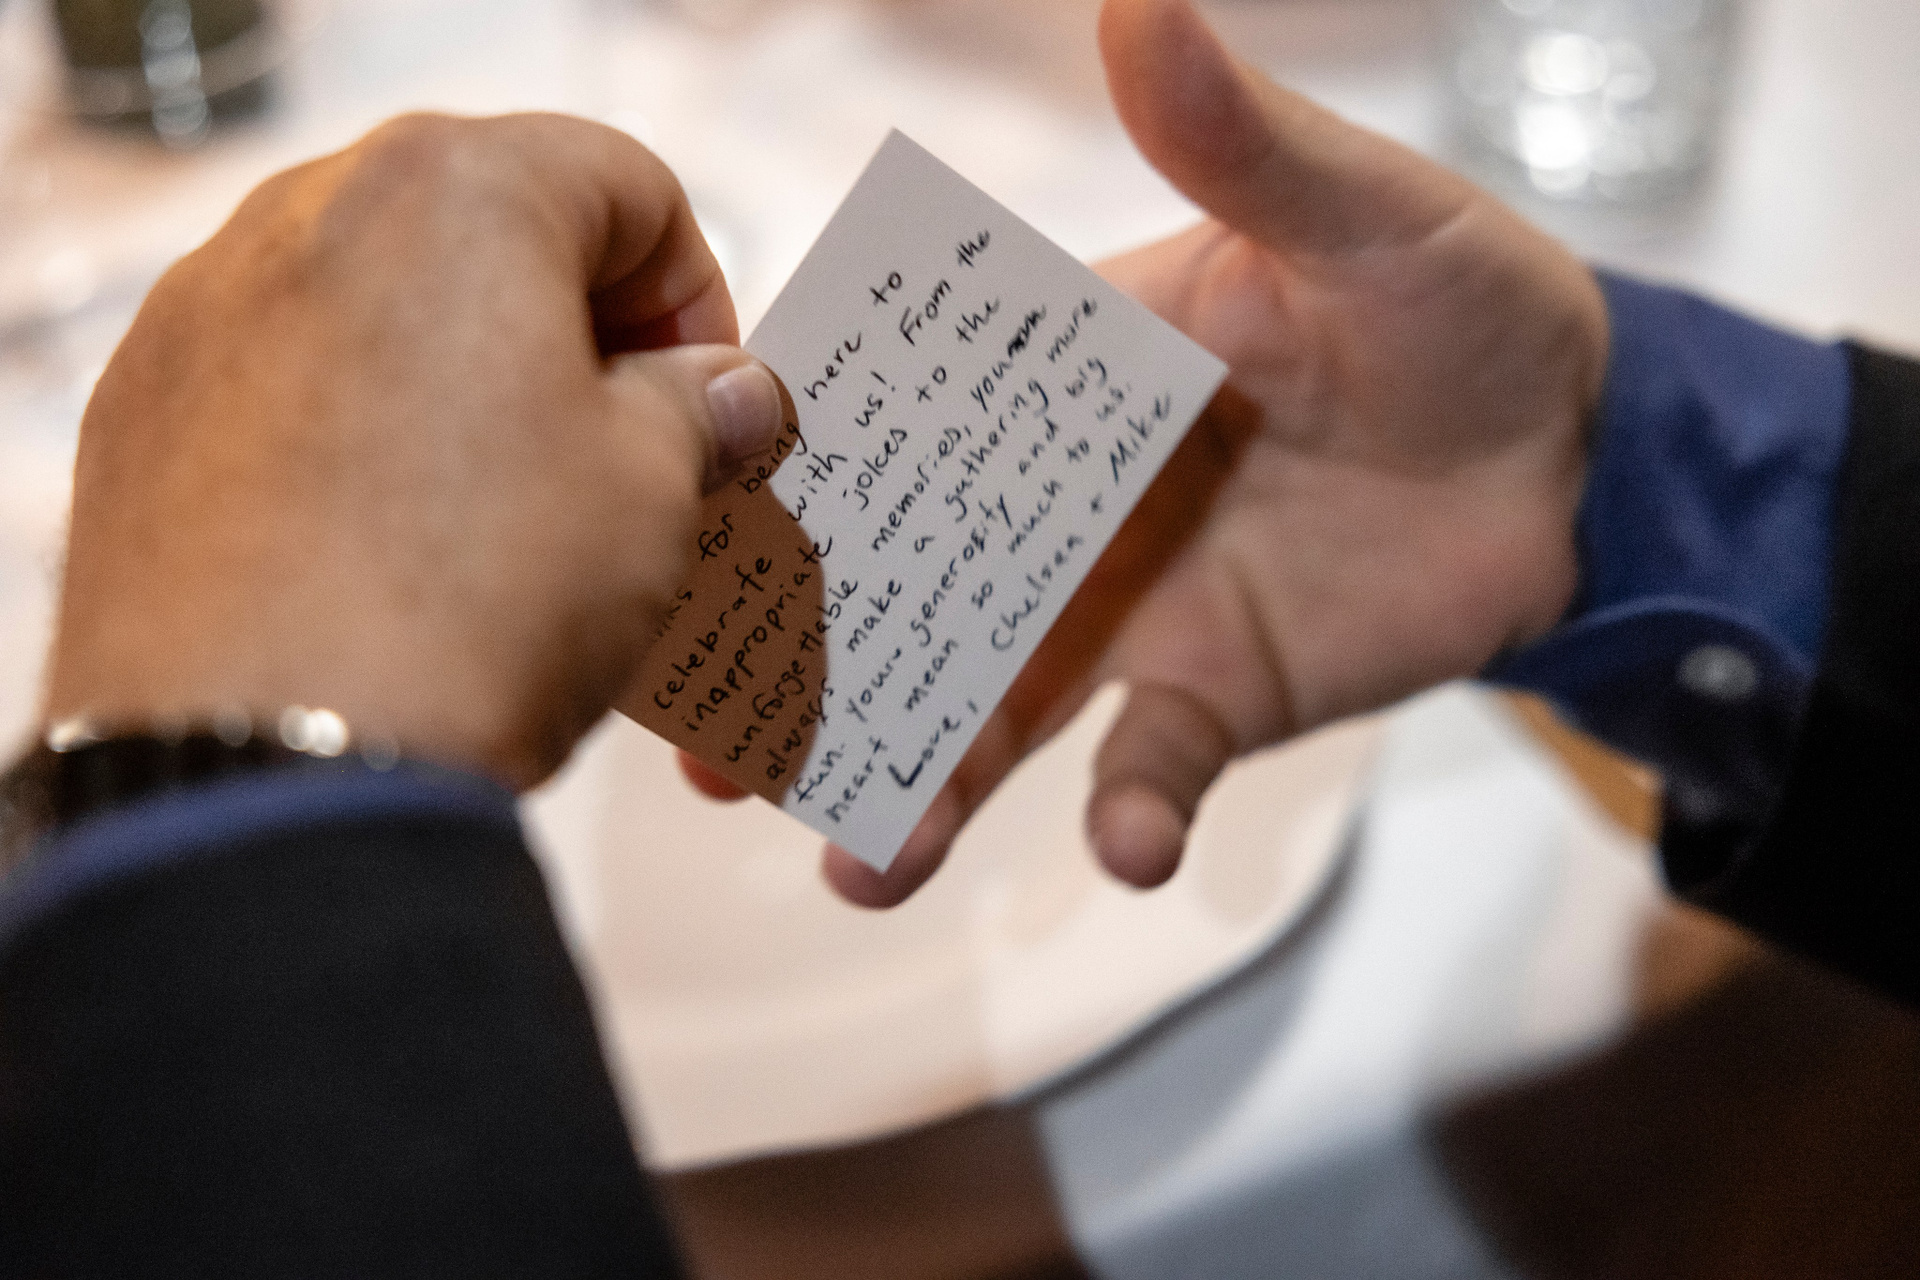 for being here to
celebrate with us! From the
inappropriate jokes to the
unforgettable memories, you
always make a gathering more
fun. Your generosity and big
heart mean so much to us.
Love, Chelsea + Mike